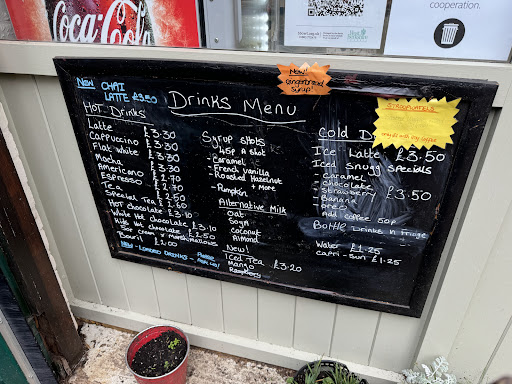 Coca-Cola
cooperation.
New!
Gingerbread
Syrup!
NEW CHAI
LATTE £3.50
Drinks Menu
Hot Drinks
Latte £3.30
Cappuccino £3.30
Flat white £3.30
Mocha £3.30
Americano £2.70
Espresso £2.70
Tea £2.50
Special Tea £2.60
Hot chocolate £3.10
White Hot chocolate £3.10
Kids Hot chocolate £2.50
50p cream n marshmallows
Bovril £2.00
Syrup shots
45p A shot
- Caramel
- French vanilla
- Roasted Hazelnut
- Pumpkin + more
Alternative Milk
Oat
Soya
Coconut
Almond
New!
Iced Tea £3.20
Mango
Raspberry
Cold D
Ice Latte £3.50
Iced Snugg Specials
- Caramel
- chocolate
- strawberry £3.50
- Banana
- oreo
Add coffee 50p
Bottle Drinks in Fridge
Water £1.25
Capri-Sun £1.25